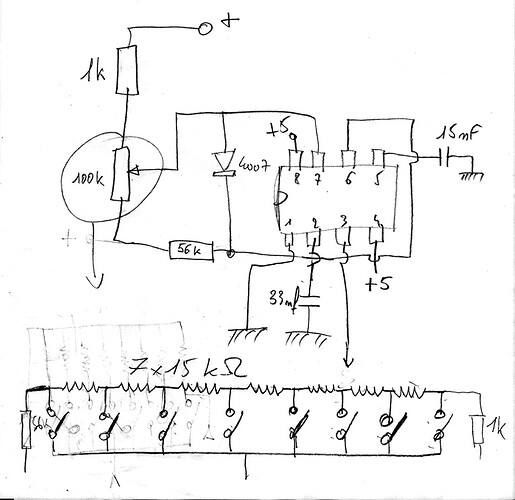 +
1k
+5
15nF
100k
4007
8 7 6 5
1 2 3 4
+
56k
+5
33nf
7x15 kΩ
56k
1k